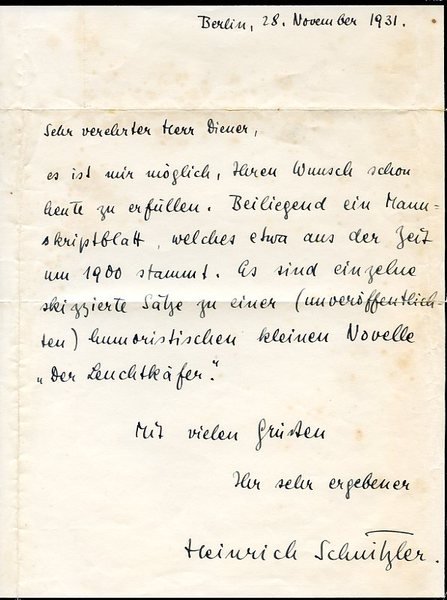 Berlin, 28. November 1931.
Sehr verehrter Herr Diener,
es ist mir möglich, Ihren Wunsch schon
heute zu erfüllen. Beiliegend ein Manu=
skriptblatt, welches etwa aus der Zeit
um 1900 stammt. Es sind einzelne
skizzierte Sätze zu einer (unveröffentlich-
ten) humoristischen kleinen Novelle
„Der Leuchtkäfer."
Mit vielen Grüssen
Ihr sehr ergebener
Heinrich Schnitzler.